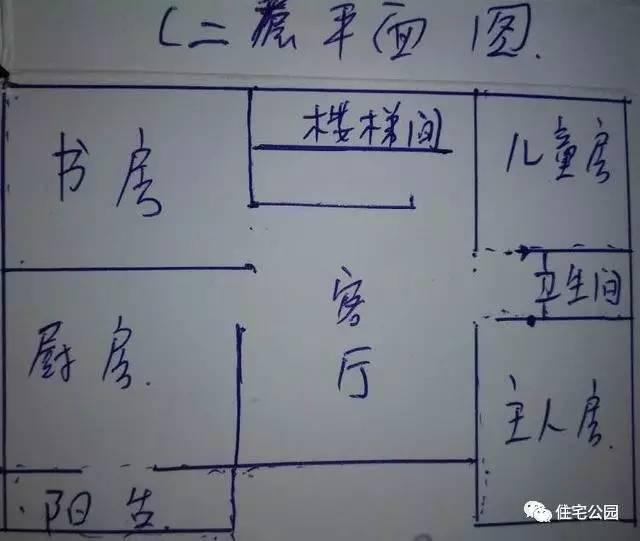 (二层平面图.
楼梯间
书房
儿童房
卫生间
客厅
厨房.
主人房.
阳台.
住宅公园